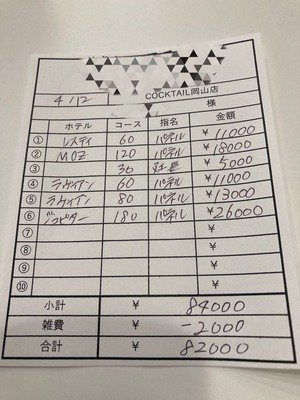 COCKTAIL岡山店
4/12 様
ホテル コース 指名 金額
① レスティ 60 パネル ¥11000
② MOZ 120 パネル ¥18000
③ 30 延長 ¥5000
④ ラヴィアン 60 パネル ¥11000
⑤ ラヴィアン 80 パネル ¥13000
⑥ ジュピター 180 パネル ¥26000
⑦ ¥
⑧ ¥
⑨ ¥
⑩ ¥
小計 ¥ 84000
雑費 ¥ -2000
合計 ¥ 82000